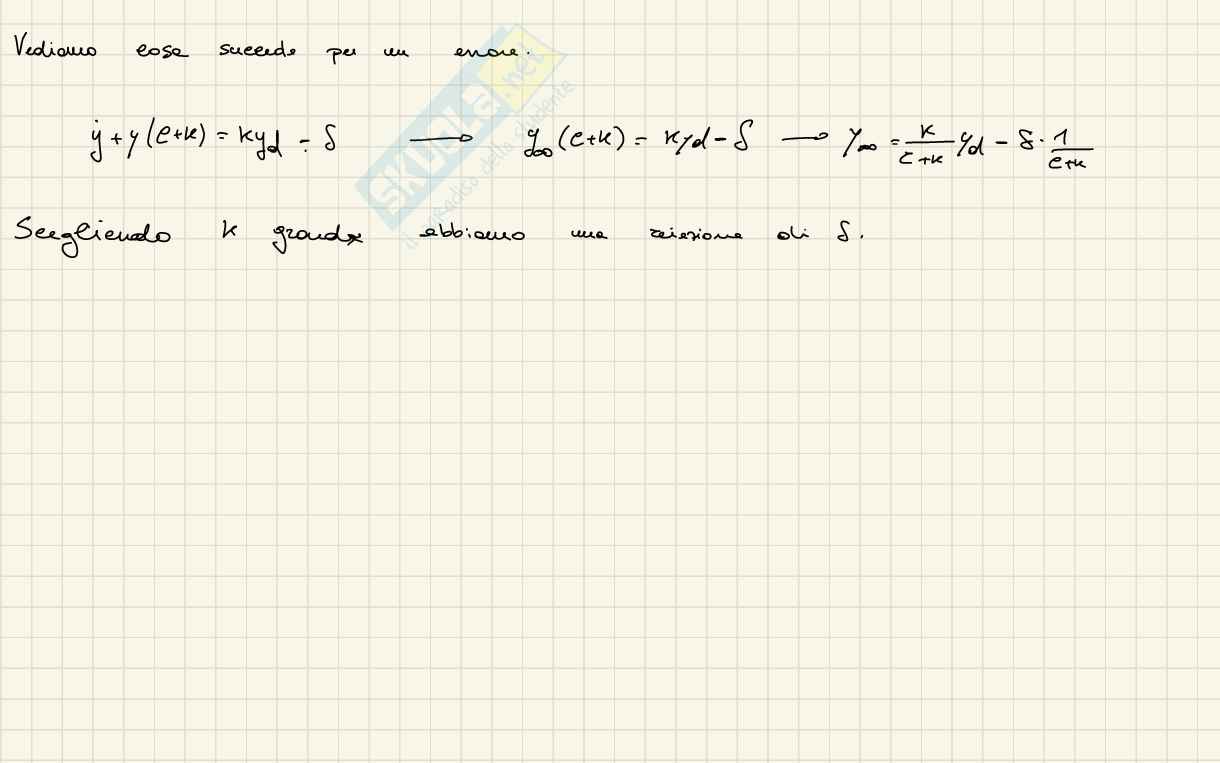 Vediamo cosa succede per un errore.
ẏ + y(c+k) = k y_d - δ → y_∞(c+k) = k y_d - δ → y_∞ = k/(c+k) y_d - δ · 1/(c+k)
Scegliendo k grande abbiamo una reiezione di δ.
SKUOLA.net
il paradiso dello studente